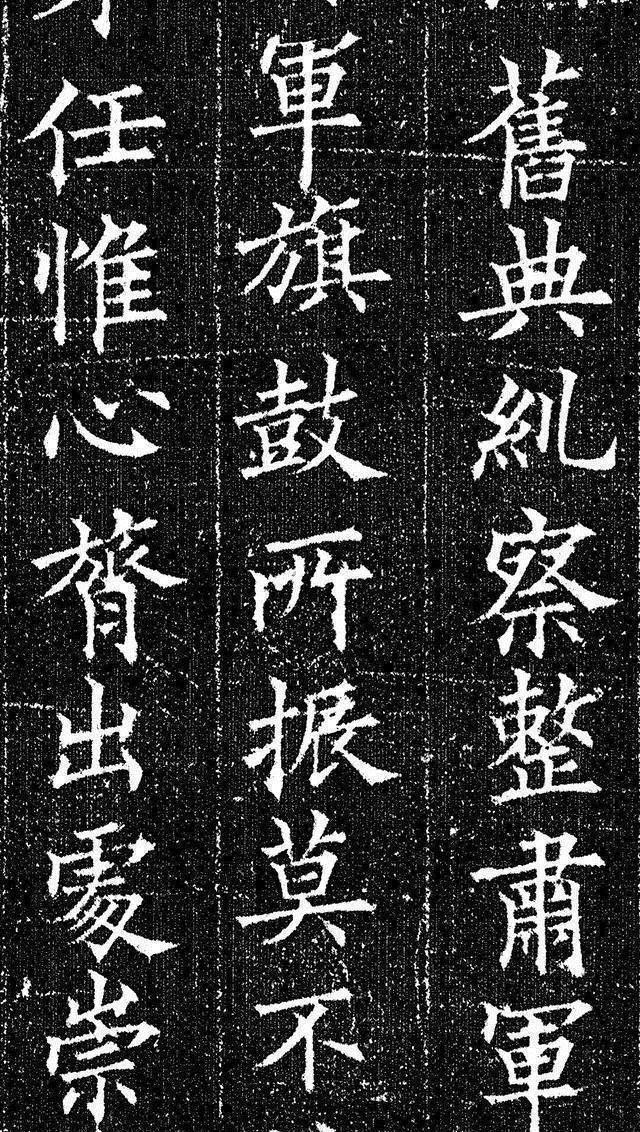 舊典糺察整肅軍
軍旗鼓所振莫不
任惟心膂出處崇